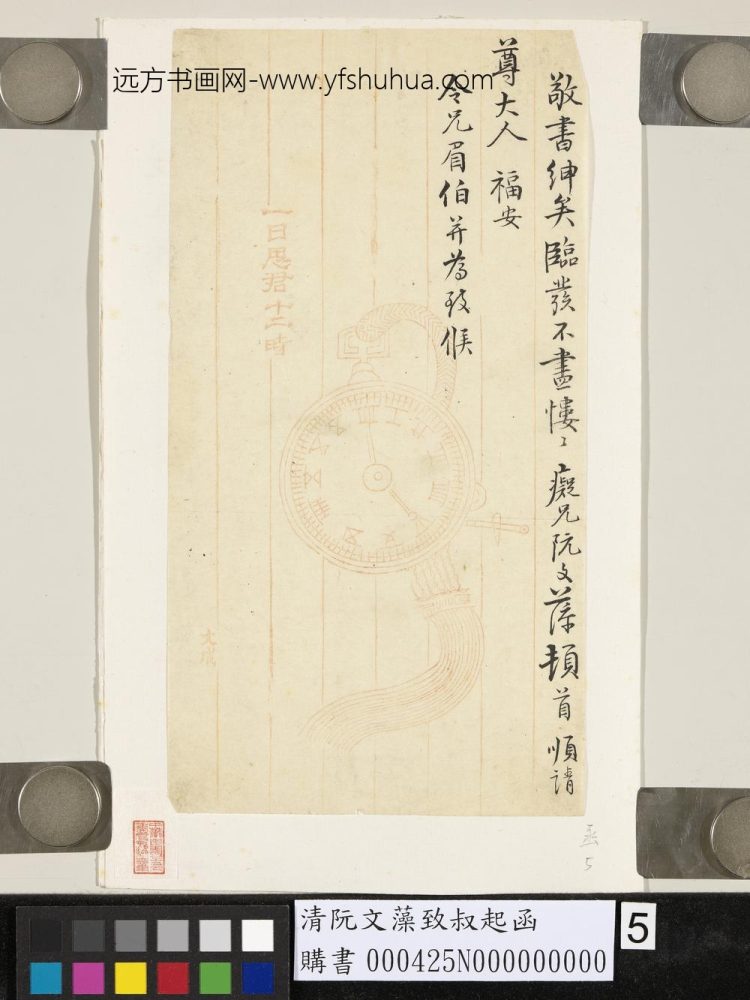 远方书画网-www.yfshuhua.com
敬書紳矣臨發不盡慺〻癡兄阮文藻頓首順請
尊大人 福安
令兄眉伯并為致候
一日思君十二時
清阮文藻致叔起函
購書 000425N000000000
5